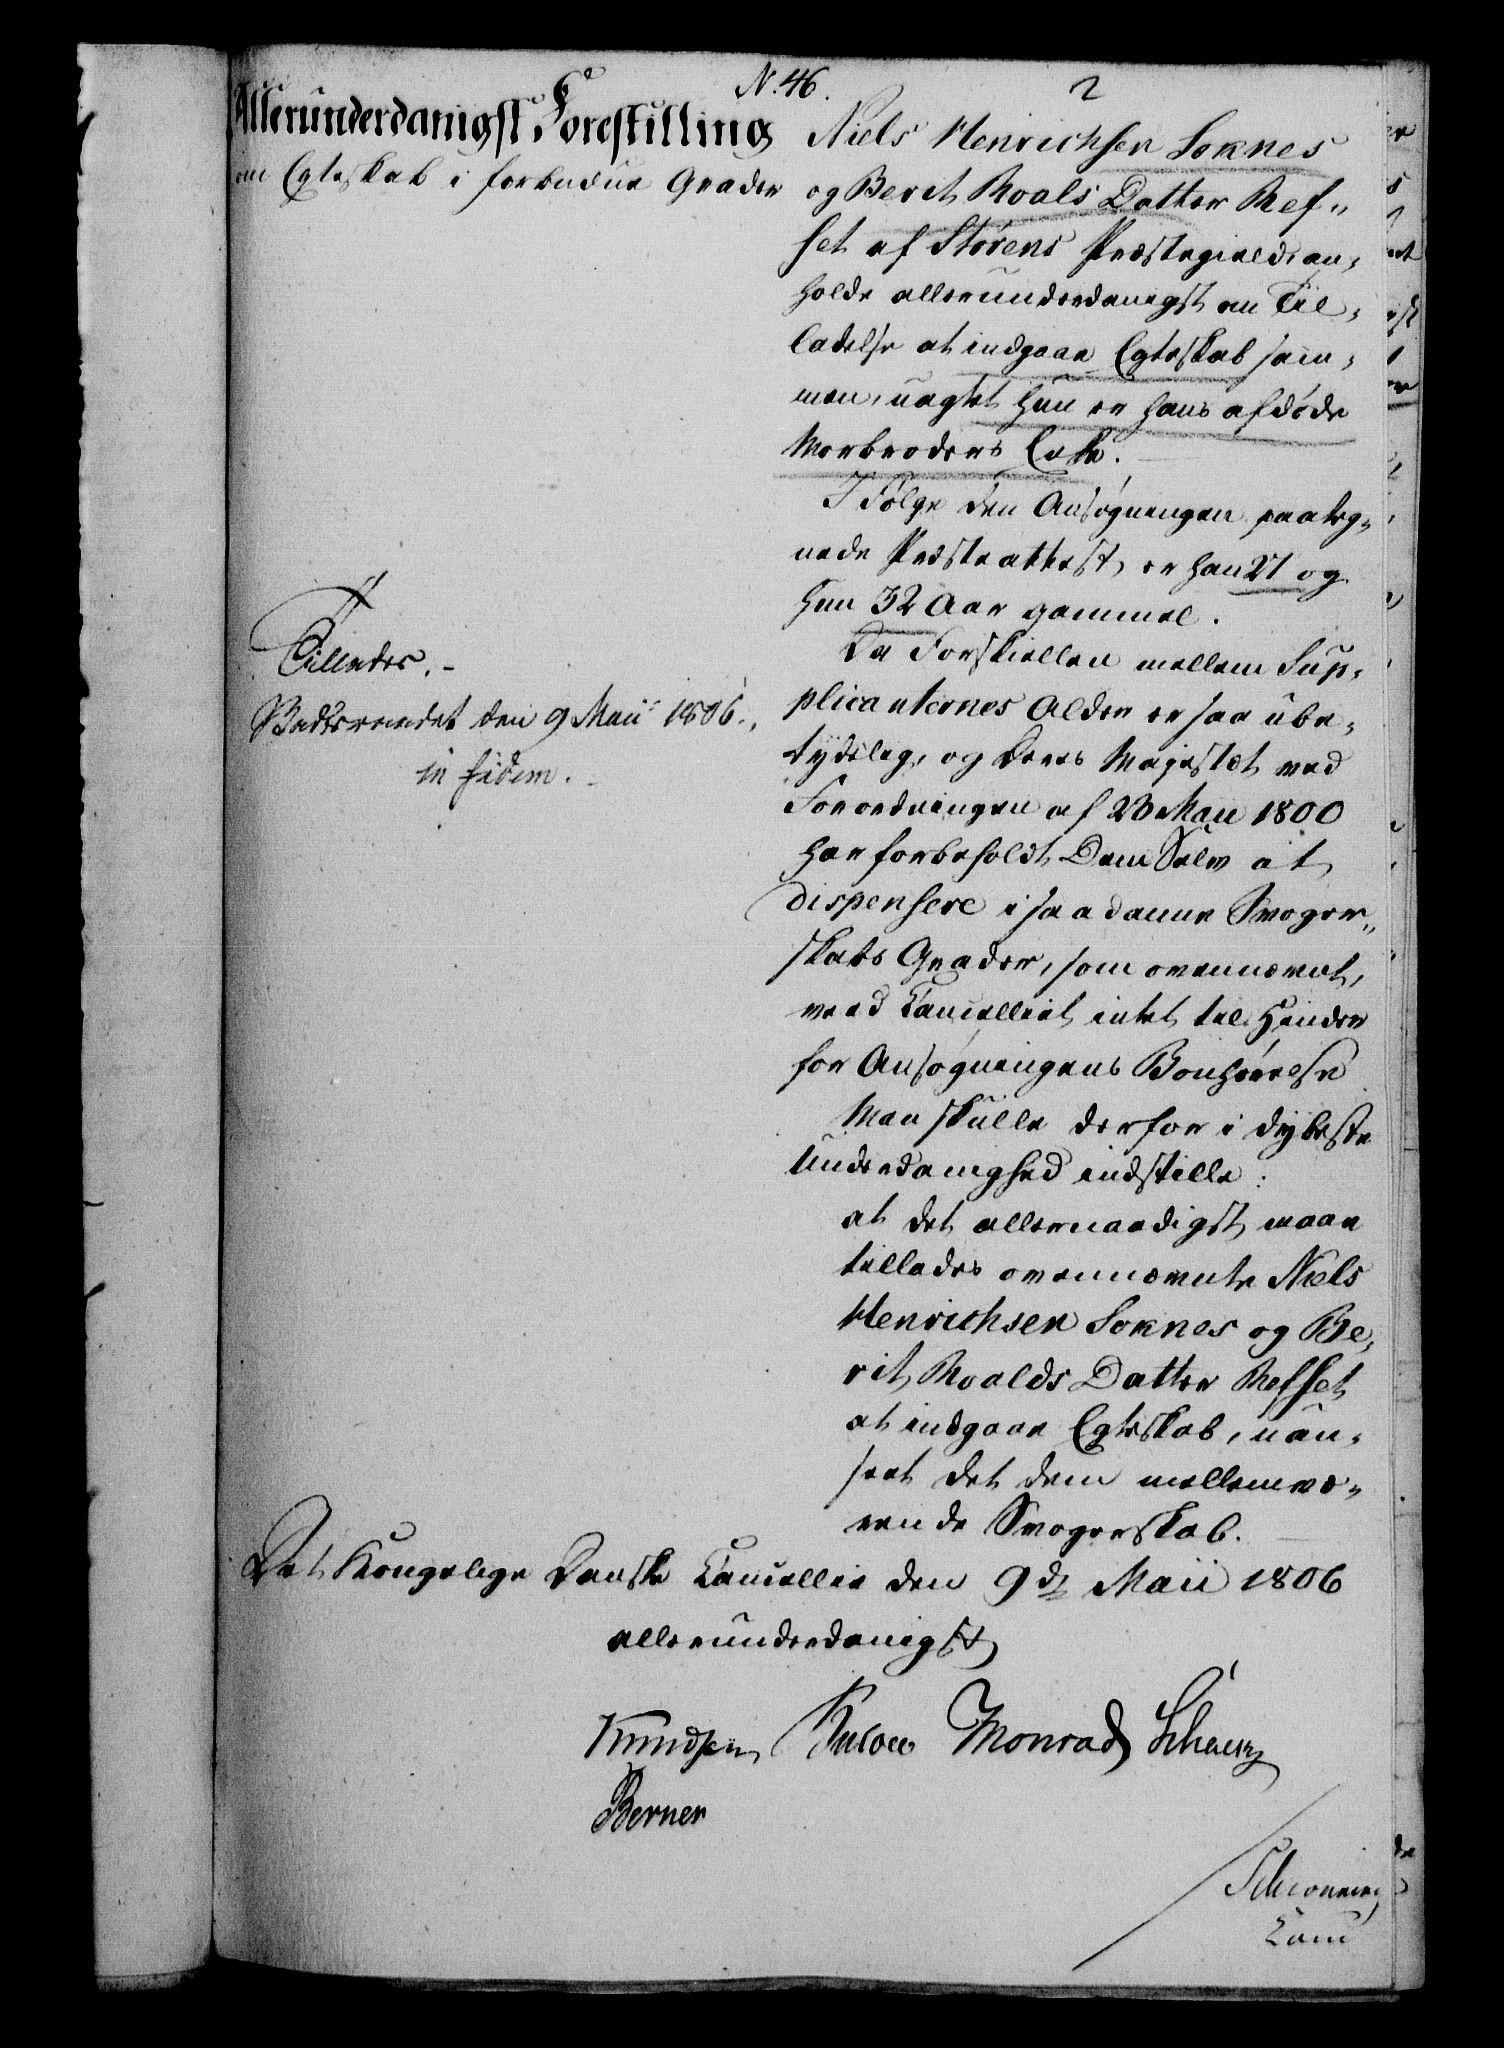 N. 46.
2
Allerunderdanigst Forestilling
om Egteskab i forbudne Grader
Niels Henrichsen Soknes
og Berit Roals Datter Ref„
set af Störens Præstegield, an„
holde allerunderdanigst om Til„
ladelse at indgaae Egteskab sam„
men, uagtet hun er hans afdöde
Morbroders Enke.
I Fölge den Ansögningen paateg„
nede Præsteattest, er han 27 og
hun 32 Aar gammel.
Da Forskiellen mellem Sup„
plicanternes Alder er saa ube„
tydelig, og Deres Majestæt ved
Forordningen af 23 Maii 1800
har forbeholdt Dem Selv at
dispensere i saadanne Svoger„
skabs Grader, som ovennævnt,
veed Cancelliet intet til Hinder
for Ansögningens Bönhörelse
Man skulle derfor i dybeste
Underdanighed indstille:
at det allernaadigst maae
tillades ovennævnte Niels
Henrichsen Soknes og Be„
rit Roalds Datter Refset
at indgaae Egteskab, uan„
seet det dem mellemvæ„
rende Svogerskab.
Tillades.
Rendsborg den 9 Maii 1806.
in fidem.
Det Kongelige Danske Cancellie den 9de Maii 1806
allerunderdanigst
Knudsen Bülow Monrad
Berner
Schönning